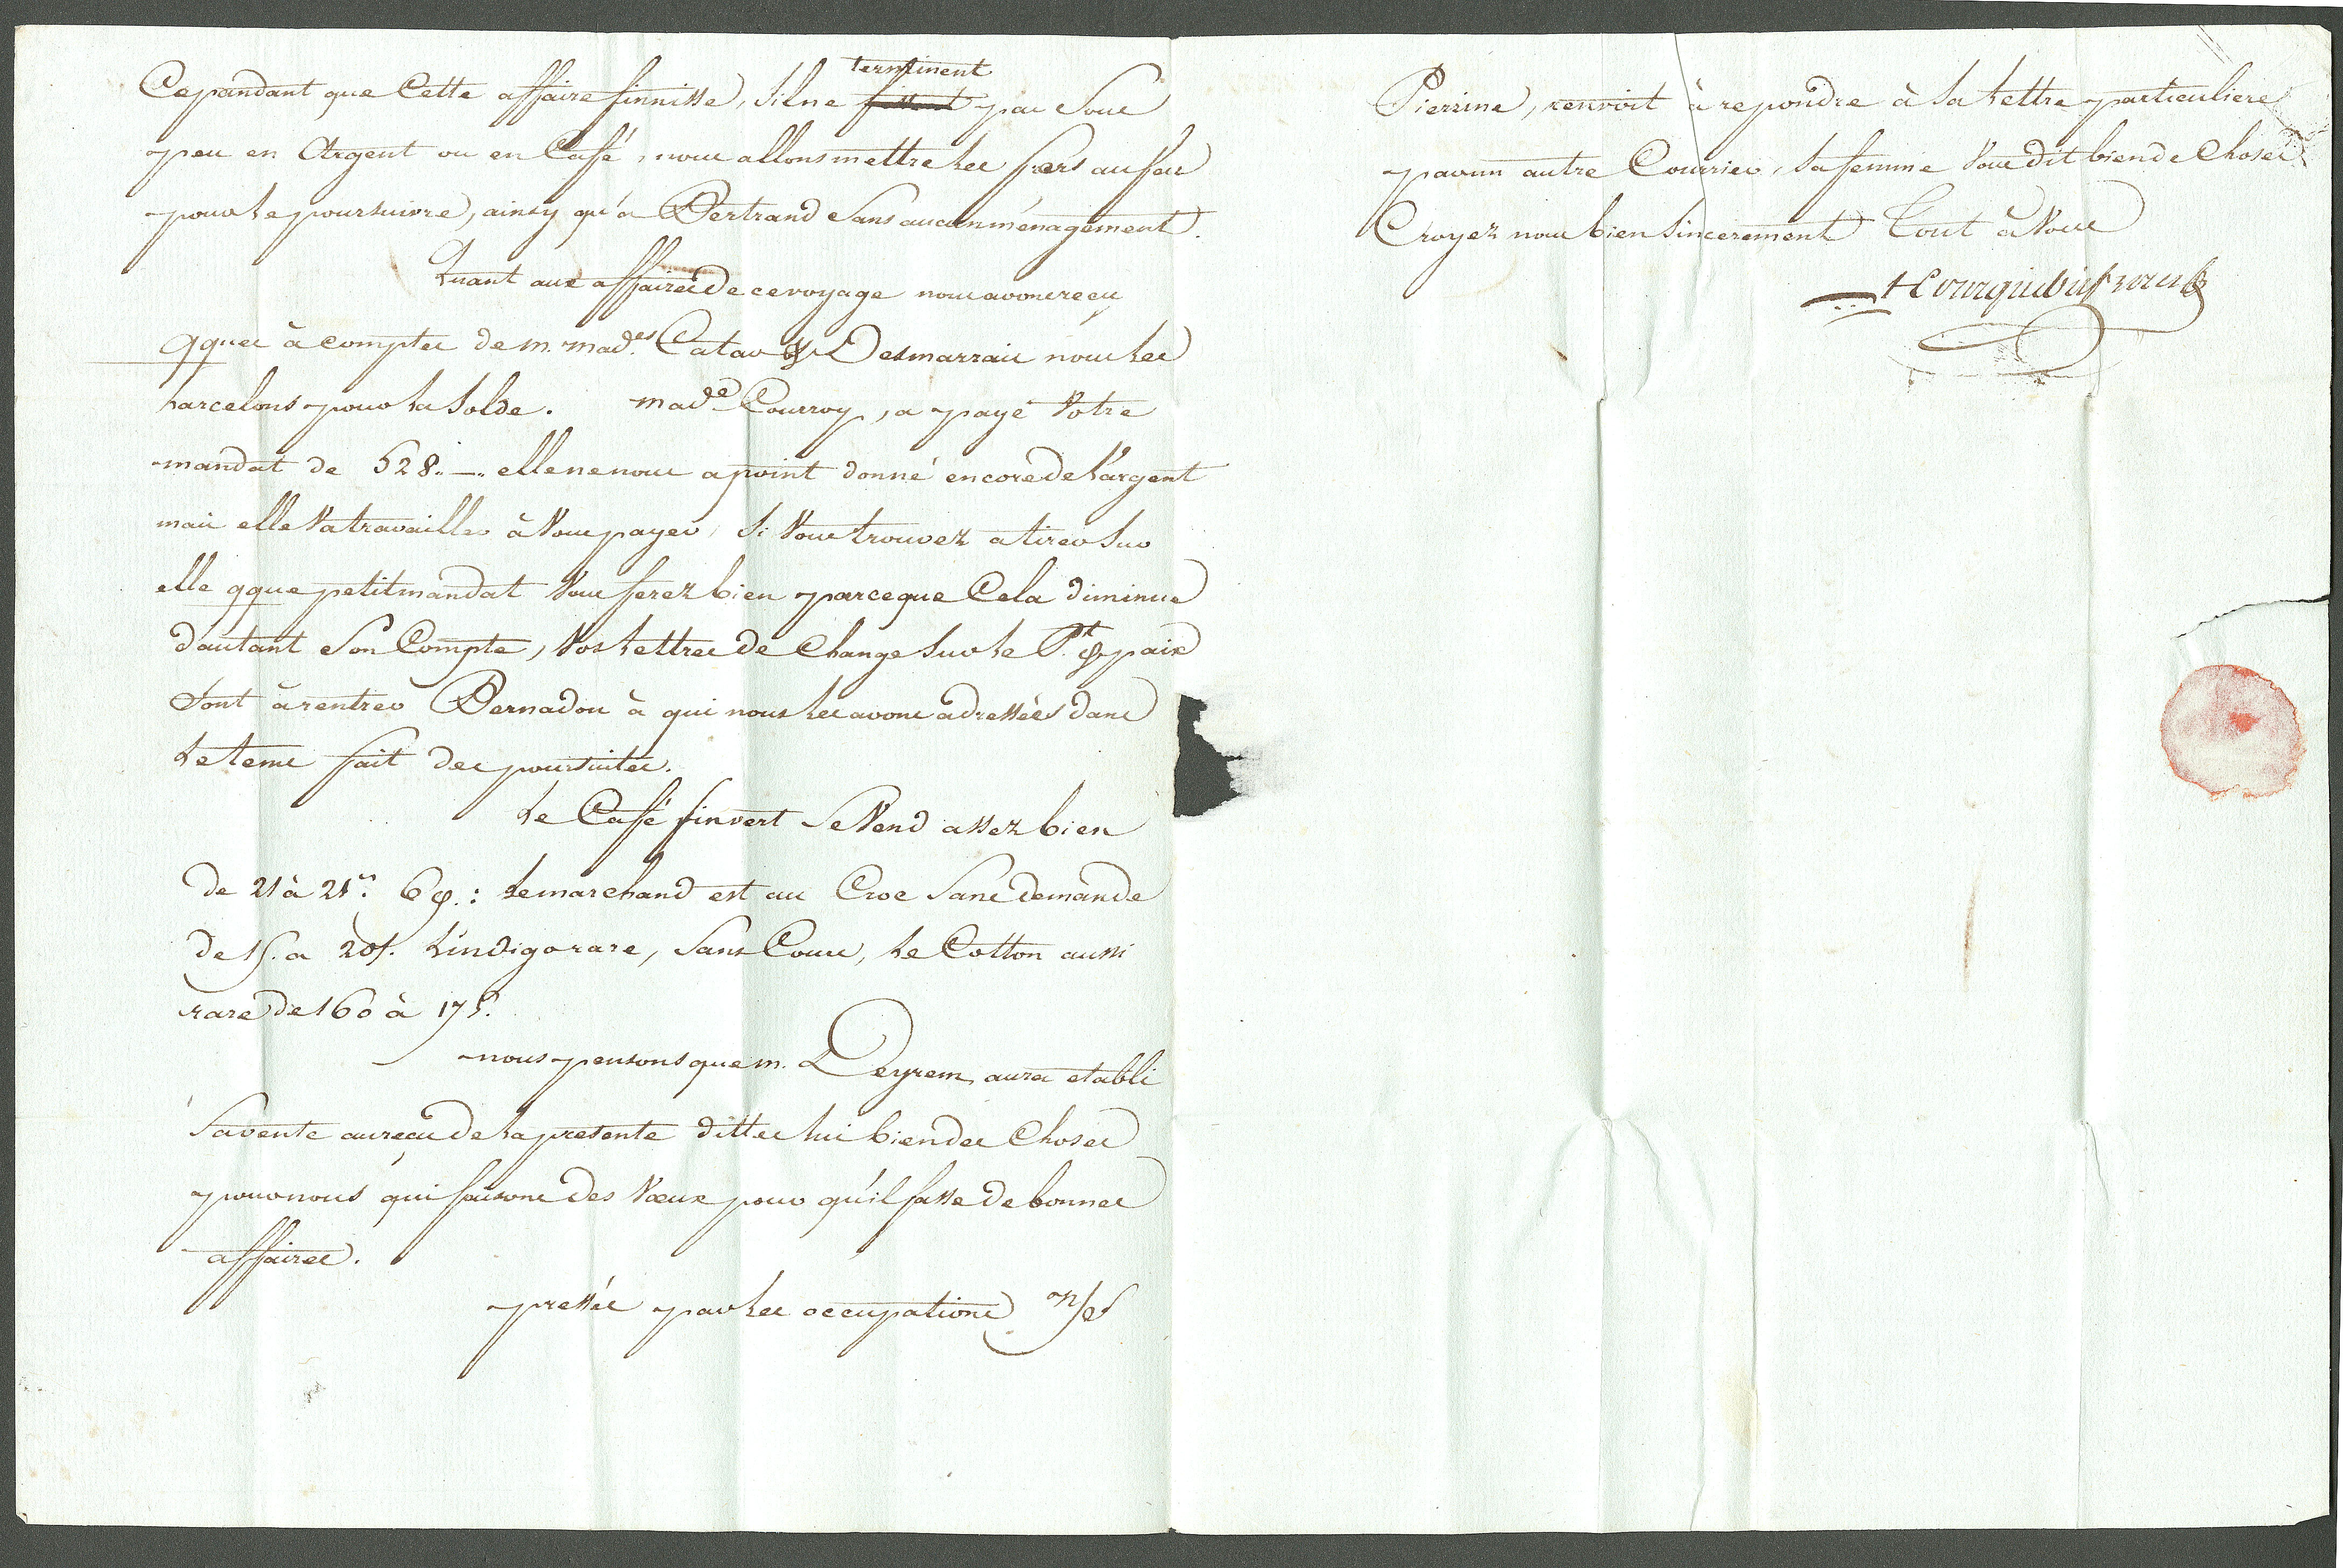 Cependant que Cette affaire finnisse, Silne terminent pas Sous
peu en Argent ou en Café, nous allons mettre les fers au feu
pour le poursuivre, ainsy qu'a Bertrand Sans aucun ménagement.
Quant aux affaires de ce voyage nous avons reçu
qques à comptes de m. mad.es Catao & Desmarrais nous les
harcelons pour la Solde. mad.e Courroy, a payé Votre
mandat de 528.. —.. elle ne nous a point donné encore de l'argent
mais elle Va travailler à Vous payer, Si Vous trouvez a tirer Sur
elle qque petit mandat Vous ferez bien parceque Cela diminue
d'autant Son Compte, Vos Lettres de Change Sur le P.t & paix
Sont à rentrer Bernadou à qui nous les avons adressées dans
le tems fait des poursuites.
Le Café fin vert Se Vend assez bien
de 21 à 21.s 6 : le marchand est au Croc Sans demande
de 15. a 20s. L'indigo rare, Sans Cours, le Cotton aussi
rare de 160 à 175.
nous pensons que m. Deyrem aura etabli
Sa vente au reçu de la presente dittes lui bien des Choses
pour nous qui faisons des Vœux pour qu'il fasse de bonnes
affaires.
pressés par les occupations n/s
Pierrine, renvoit à repondre à Sa Lettre particuliere
par un autre Courrier, Sa femme Vous dit bien de Choses
Croyez nous bien Sincerement Tout à Vous